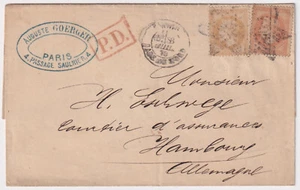 AUGUSTE GOERGER
PARIS
4, PASSAGE SAULNIER, 4.
P.D.
Monsieur
H.
Courtier d'assurances
Hambourg
Allemagne